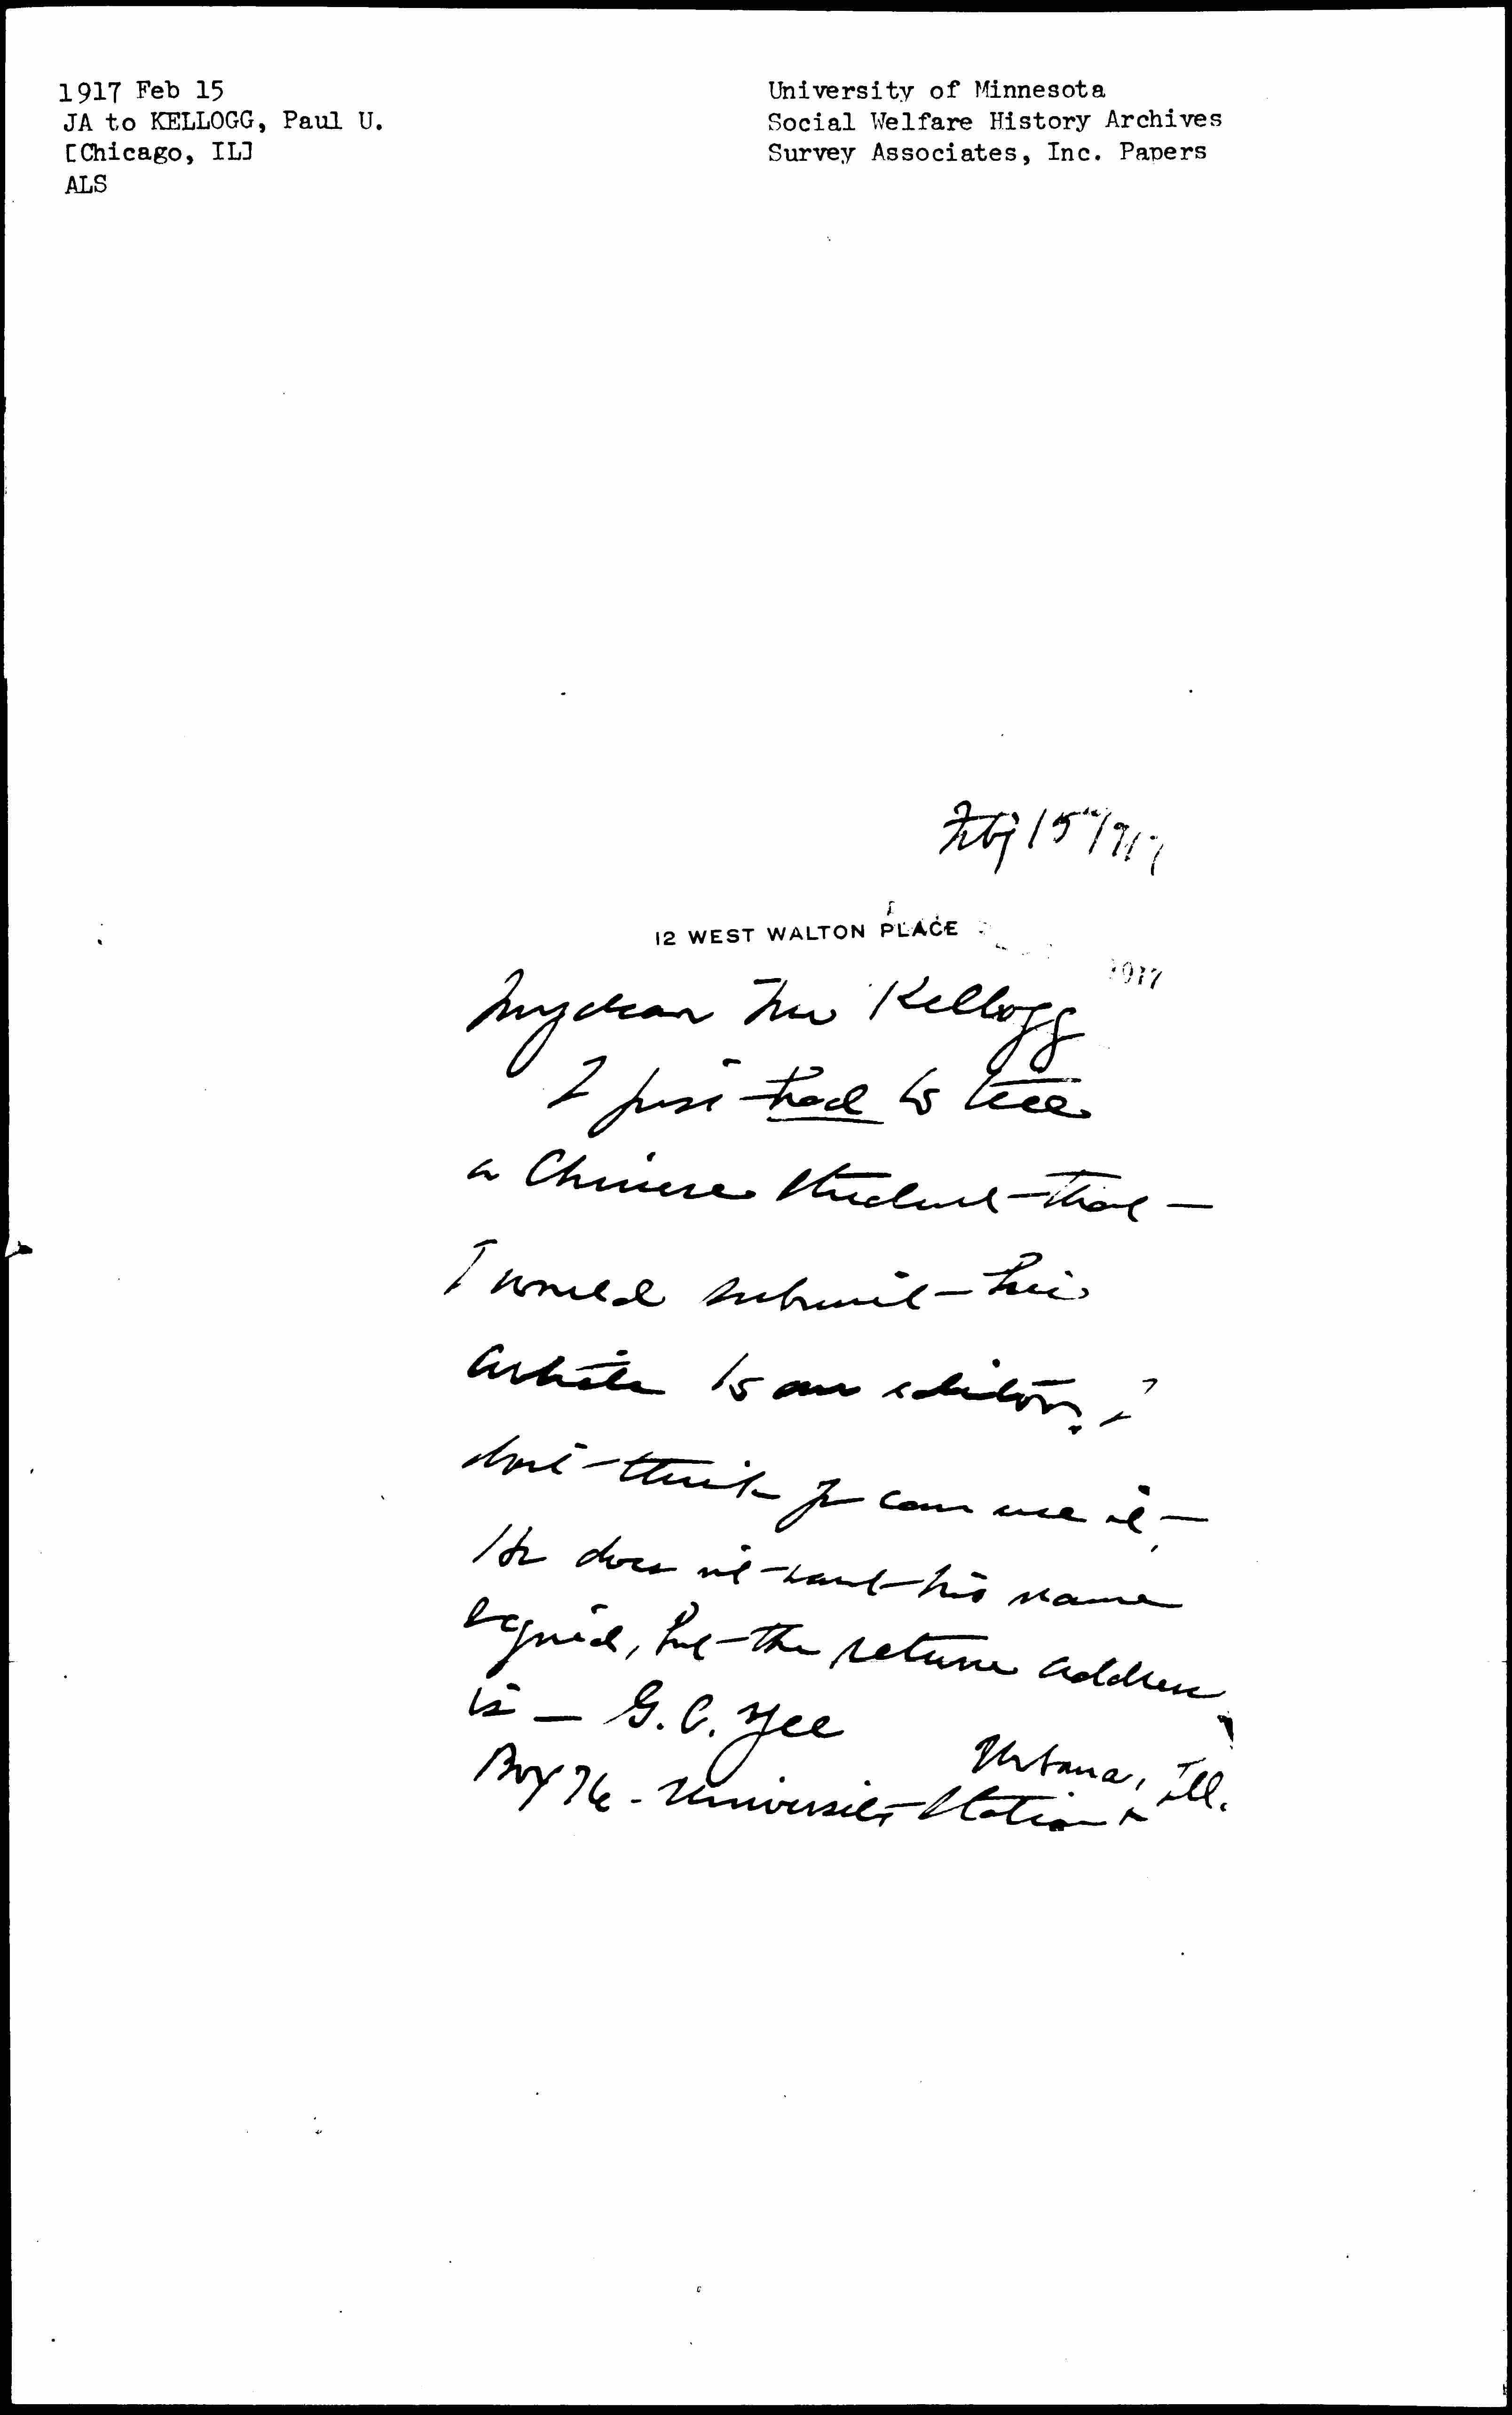 1917 Feb 15
JA to KELLOGG, Paul U.
[Chicago, IL]
ALS
University of Minnesota
Social Welfare History Archives
Survey Associates, Inc. Papers
Feby 15" 1917
12 WEST WALTON PLACE
1917
My dear Mr Kellogg
I just had to tell
a Chinese student that
I would submit this
article to an editor. I
don't think you can use it –
He does not want his name
signed, but the return address
is – G. C. Yee
Box 76 - University Station
Urbana, Ill.